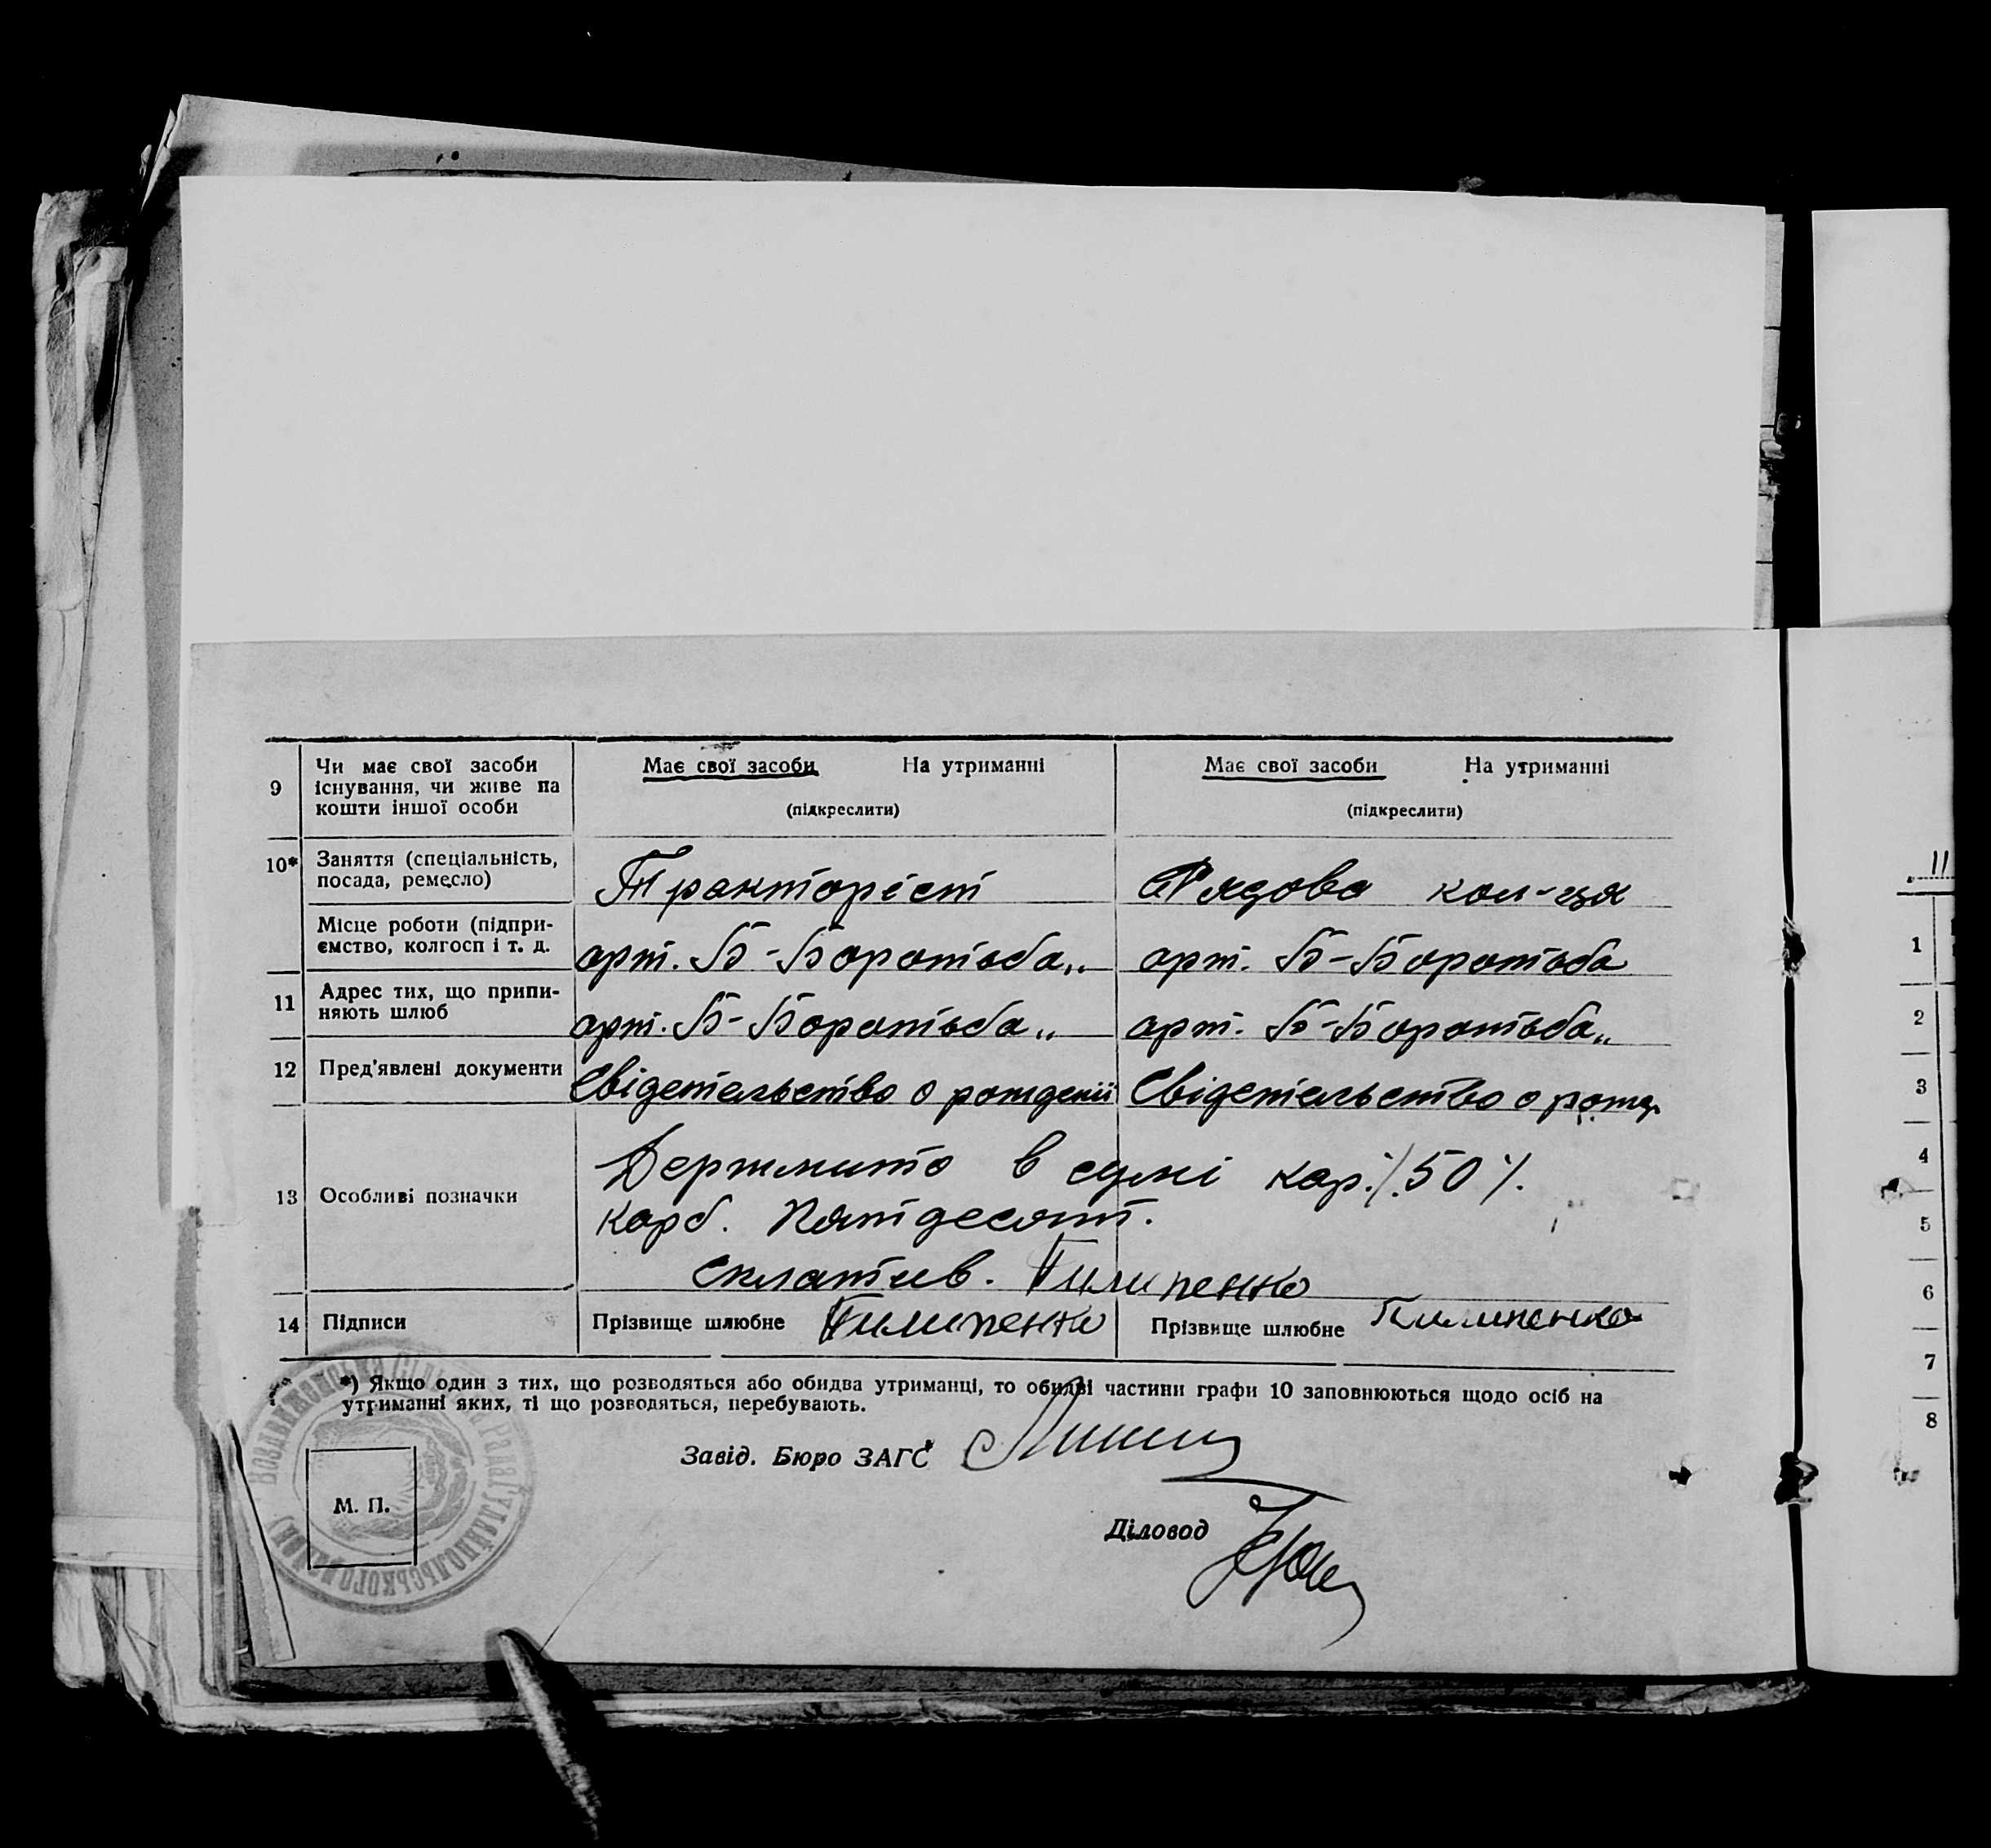 9 Чи має свої засоби існування, чи живе на кошти іншої особи
Має свої засоби На утриманні
(підкреслити)
Має свої засоби На утриманні
(підкреслити)
10* Заняття (спеціальність, посада, ремесло)
Тракторіст
Рядова кол-ця
Місце роботи (підприємство, колгосп і т. д.
арт. Б-Боротьба"
арт. Б-Боротьба
11 Адрес тих, що припиняють шлюб
арт. Б-Боротьба"
арт. Б-Боротьба"
12 Пред'явлені документи
Свідетельство о рождениі
Свідетельство о рожд.
13 Особливі позначки
Держмито в сумі кар. /.50 /.
карб. Пятдесят.
сплатив. Пилипенко
14 Підписи
Прізвище шлюбне Пилипенко
Прізвище шлюбне Пилипенко
*) Якщо один з тих, що розводяться або обидва утриманці, то обидві частини графи 10 заповнюються щодо осіб на
утриманні яких, ті що розводяться, перебувають.
Завід. Бюро ЗАГС
Діловод
М. П.
Гуляйпольського району
11
1
2
3
4
5
6
7
8